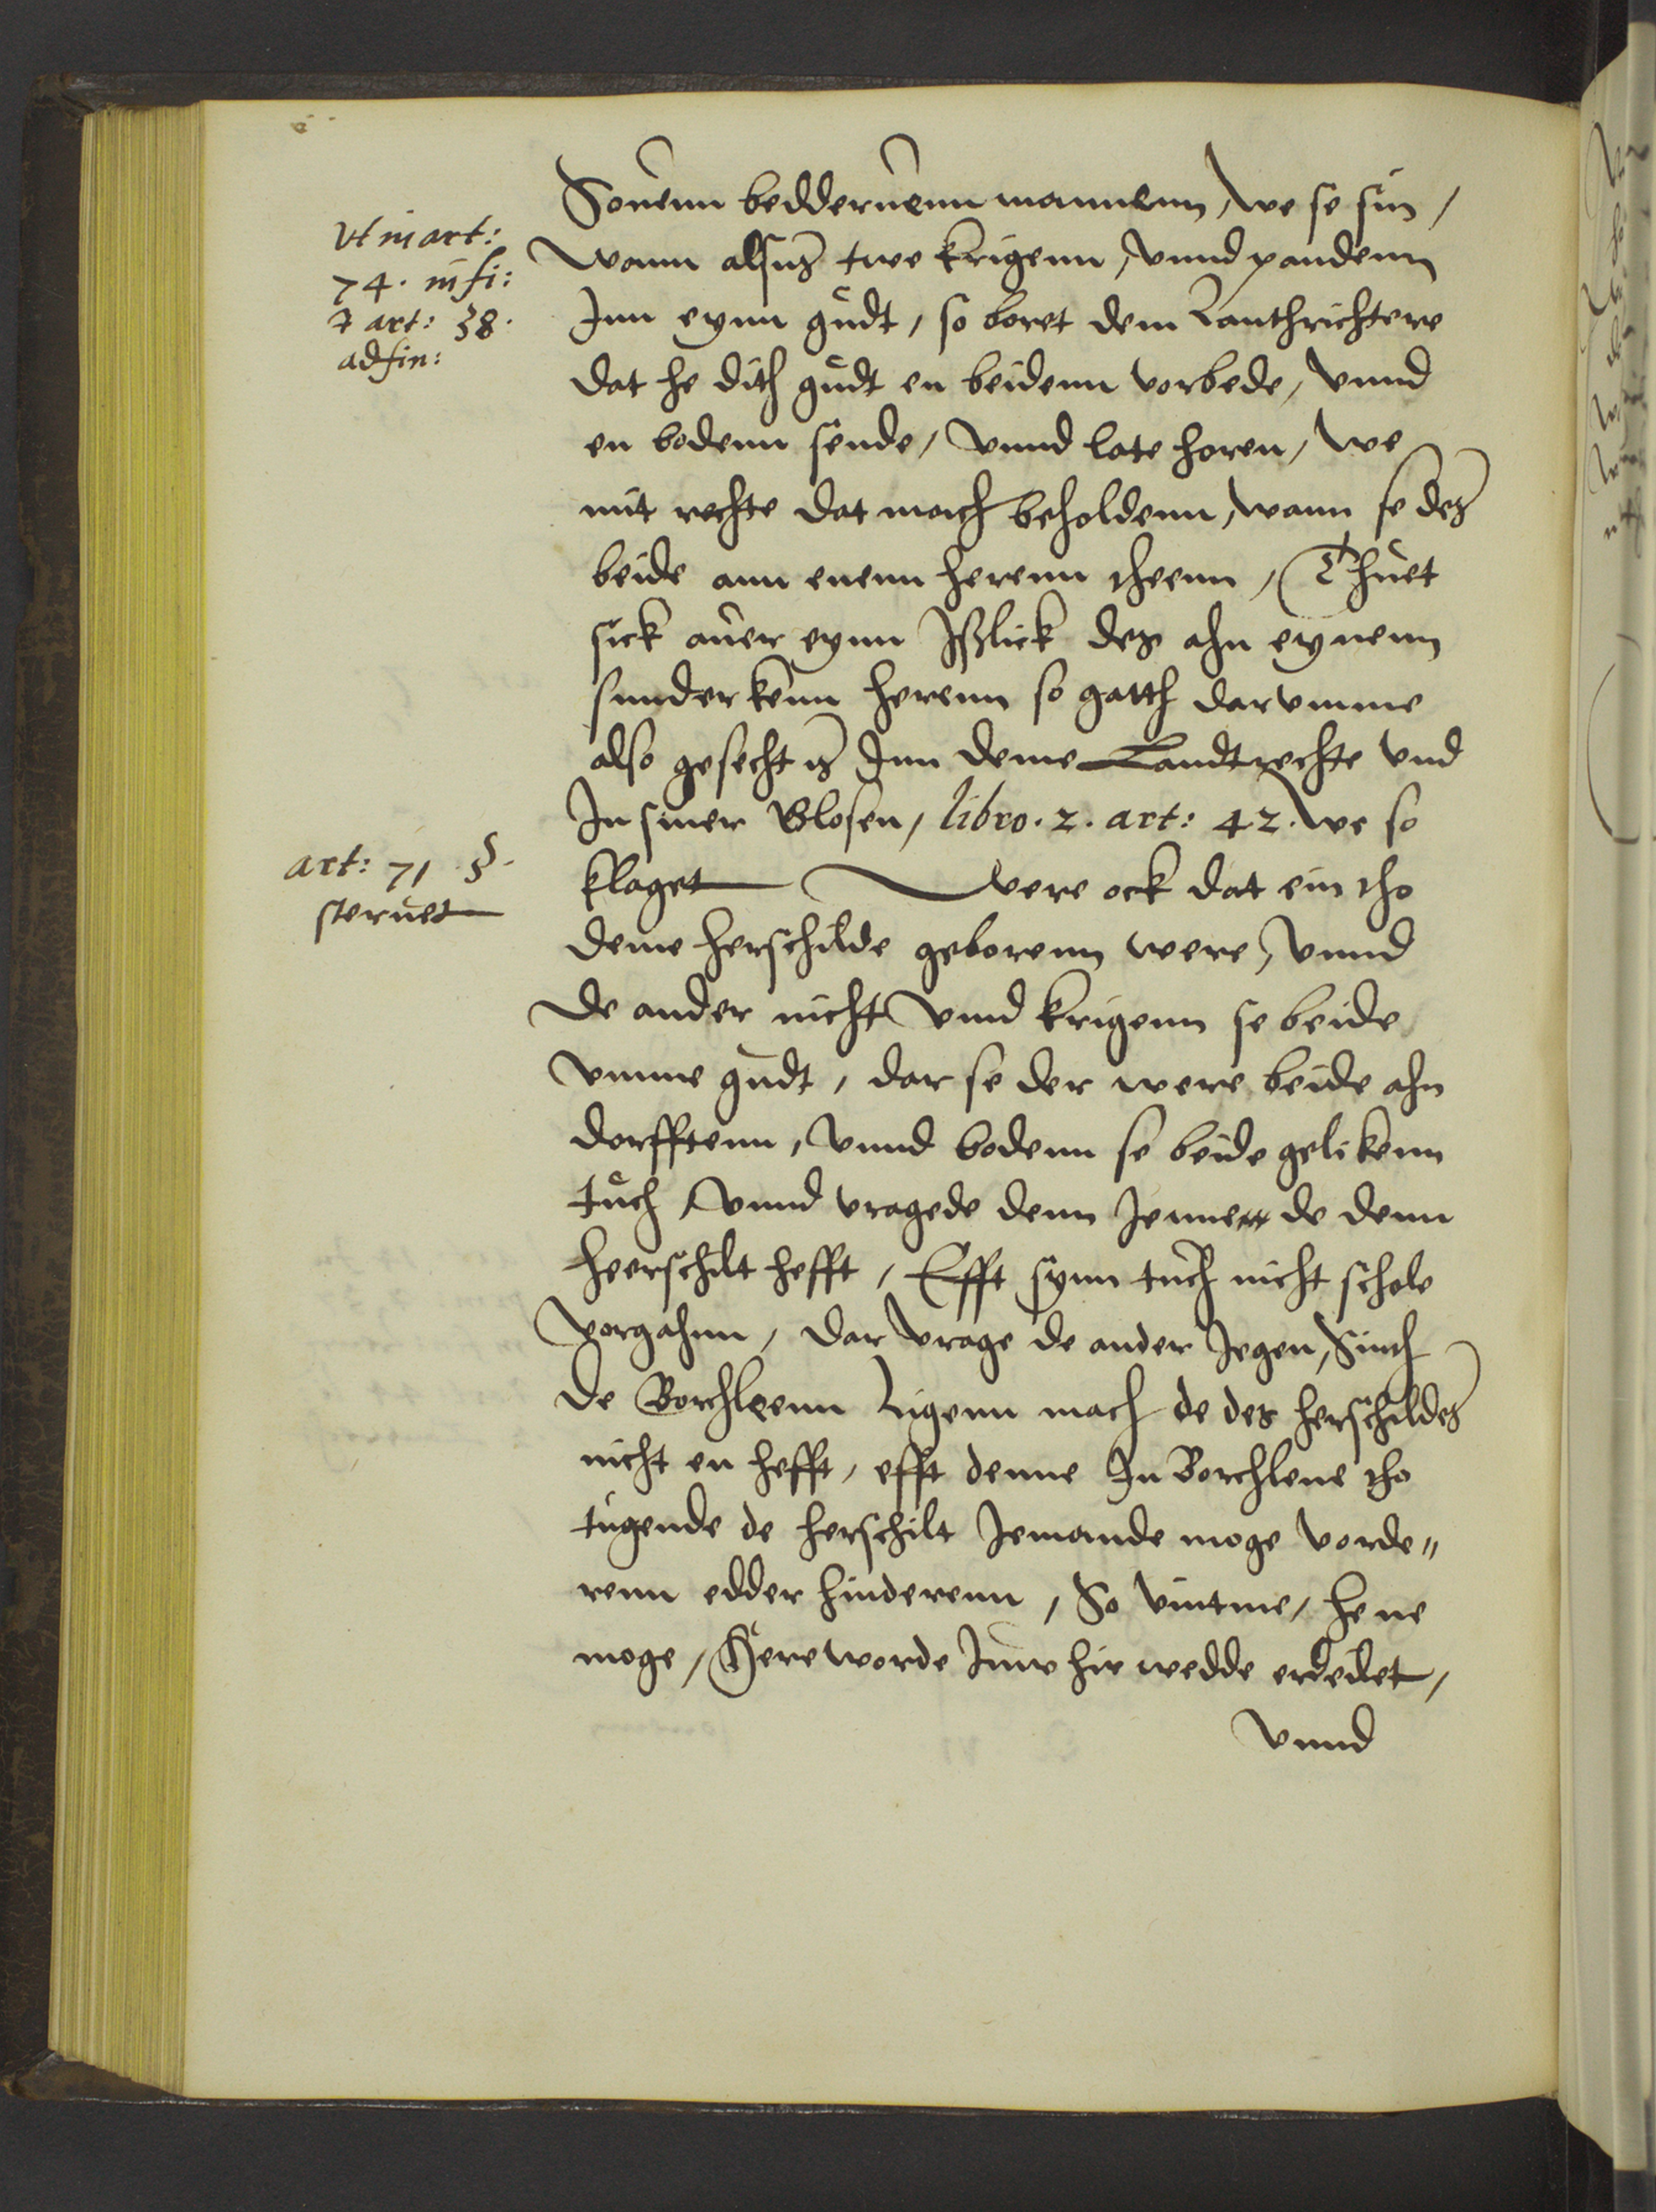 Vt in art:
74. in fi:
et art: 38.
ad fin:
Souenn beddernenn mannenn, we se sin,
wann alsus twe krigenn, vnnd pandenn
Inn eynn gudt, so boret dem Lanthrichtere
dat he dith gudt en beidenn vorbede, vnnd
en bodenn sende, vnnd late horen, we
mit rechte dat mach beholdenn, wann se des
beide ann enenn herenn theenn, Thuet
sick auer eynn Jßlick des ahn eynenn
sunderkenn herenn so gatth darumme
also gesecht is Inn deme Landtrechte vnd
In siner Glosen, libro. 2. art: 42. we so
art: 71 §.
steruet
klaget were ock dat ein tho
deme herschilde geborenn were, vnnd
de ander nicht vnnd krigenn se beide
vmme gudt, dar se der were beide ahn
dorfftenn, vnnd bodenn se beide gelikenn
tuch, vnnd vragede denn Jennen de denn
heerschilt hefft, Efft synn tuch nicht schole
vorgahnn, dar vrage de ander Jegen, Sinth
de Borchleenn tugenn mach de des herschildes
nicht en hefft, efft denne In Borchlene tho
tugende de herschilt Jemande moge vorde„
renn edder hinderenn, So vintme, he ne
moge, Here worde Juw hir wedde erdeilet,
vnnd